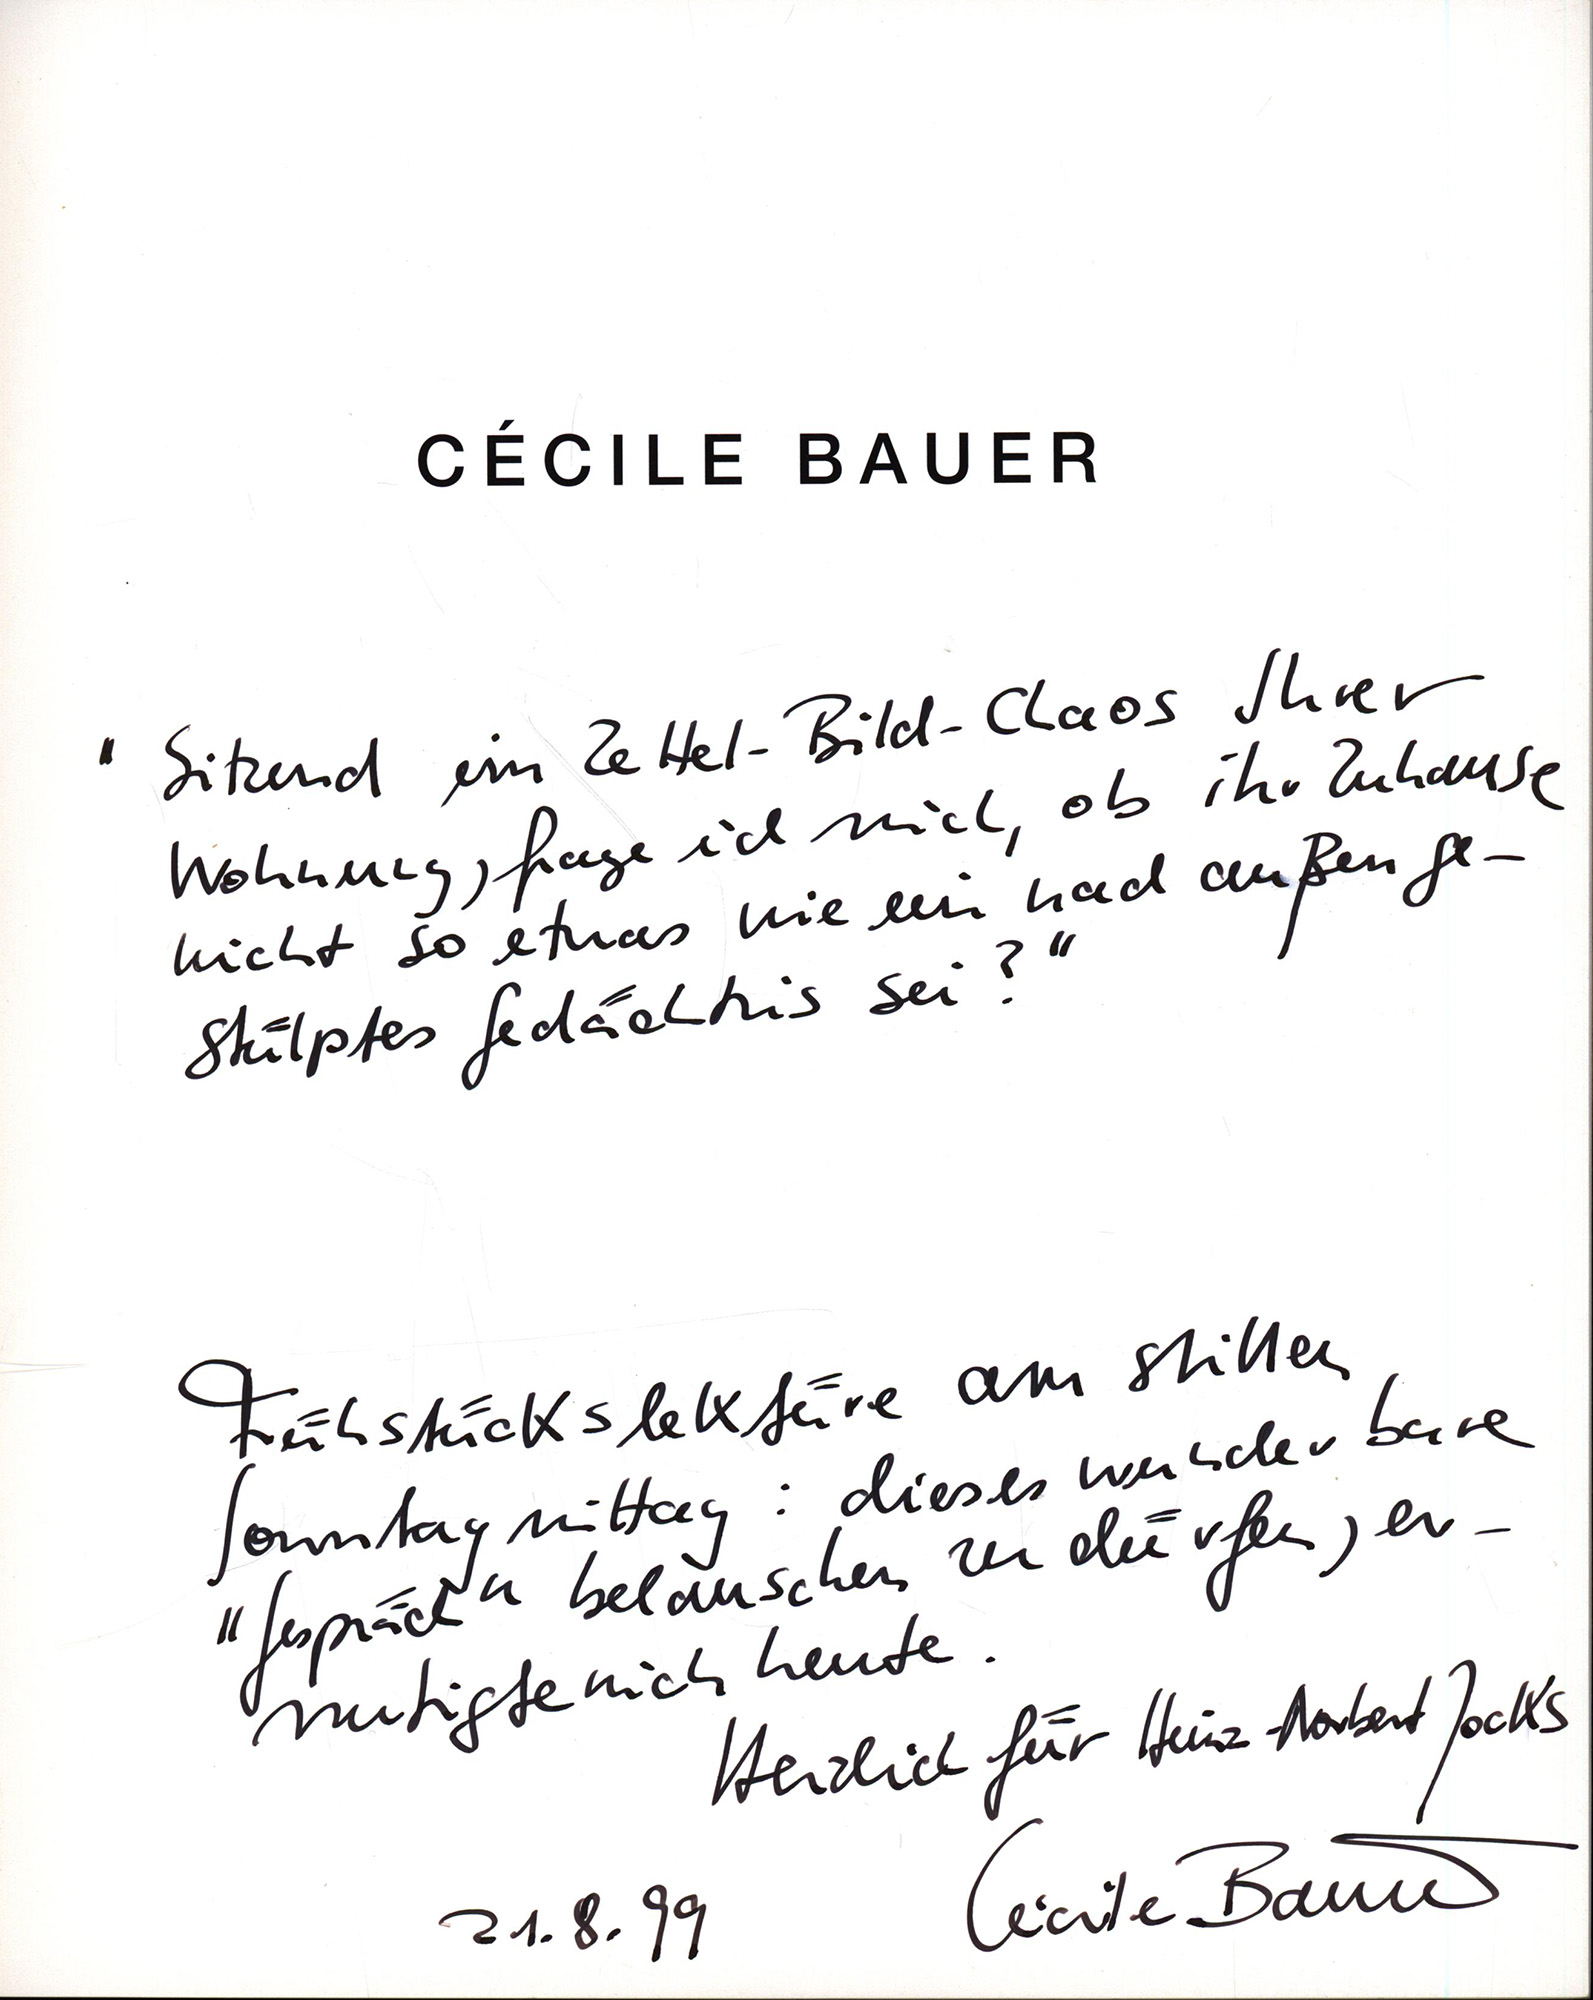 CÉCILE BAUER
"Sitzend im Zettel-Bild-Chaos Ihrer
Wohnung, frage ich mich, ob ihr Zuhause
nicht so etwas wie ein nach außen ge-
stülptes Gedächtnis sei?"
Frühstückslektüre am stillen
Sonntagmittag: dieses wunderbare
"Gespräch" belauschen zu dürfen, er-
mutigte mich heute.
Herzlich für Heinz-Norbert Jocks
Cécile Bauer
21.8.99